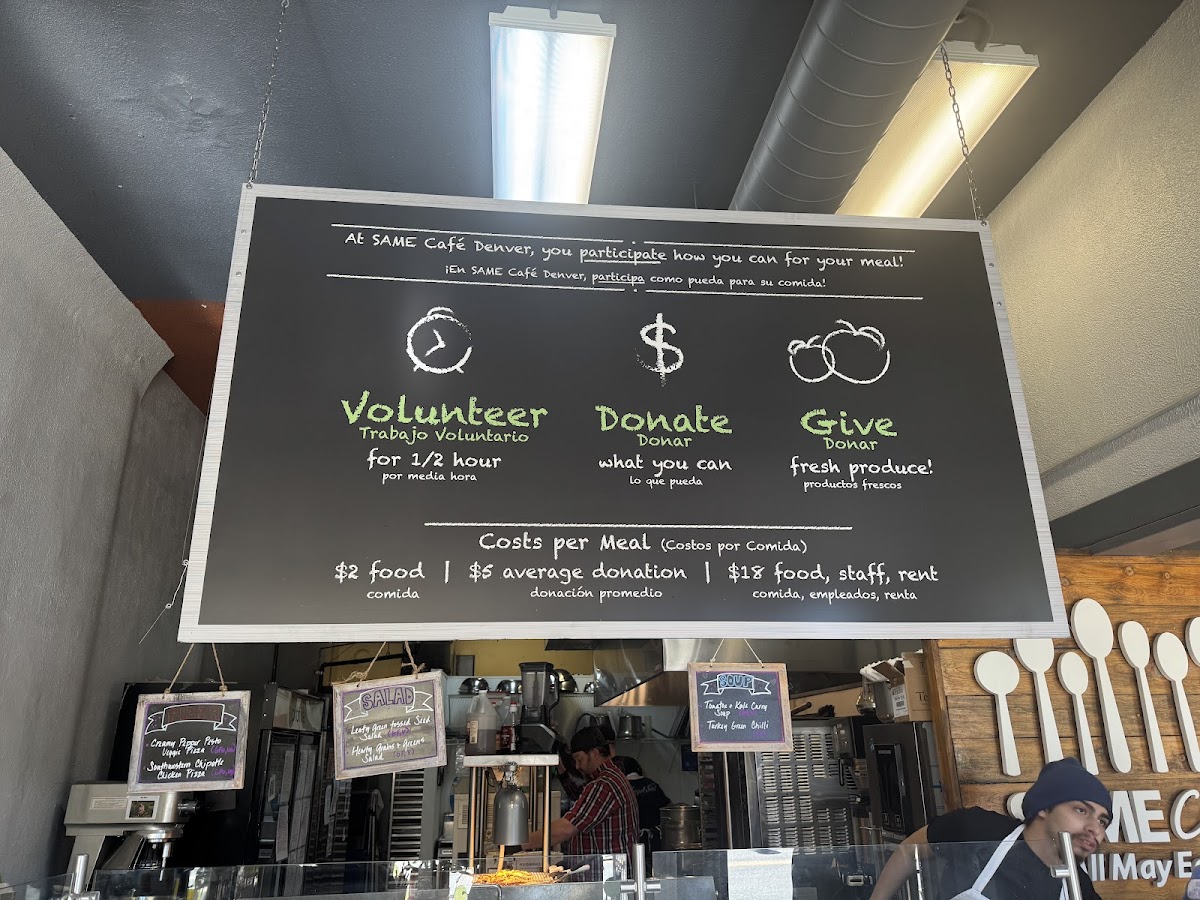 At SAME Café Denver, you participate how you can for your meal!
¡En SAME Café Denver, participa como pueda para su comida!
Volunteer
Trabajo Voluntario
for 1/2 hour
por media hora
Donate
Donar
what you can
lo que pueda
Give
Donar
fresh produce!
productos frescos
Costs per Meal (Costos por Comida)
$2 food | $5 average donation | $18 food, staff, rent
comida donación promedio comida, empleados, renta
Creamy Pepper Pesto
Veggie Pizza
Southwestern Chipotle
Chicken Pizza
SALAD
Leafy Green tossed Seed
Salad
Hearty Grains + Greens
Salad
SOUP
Tomato + Kale Curry
Soup
Turkey Green Chilli
ME C
ll May E